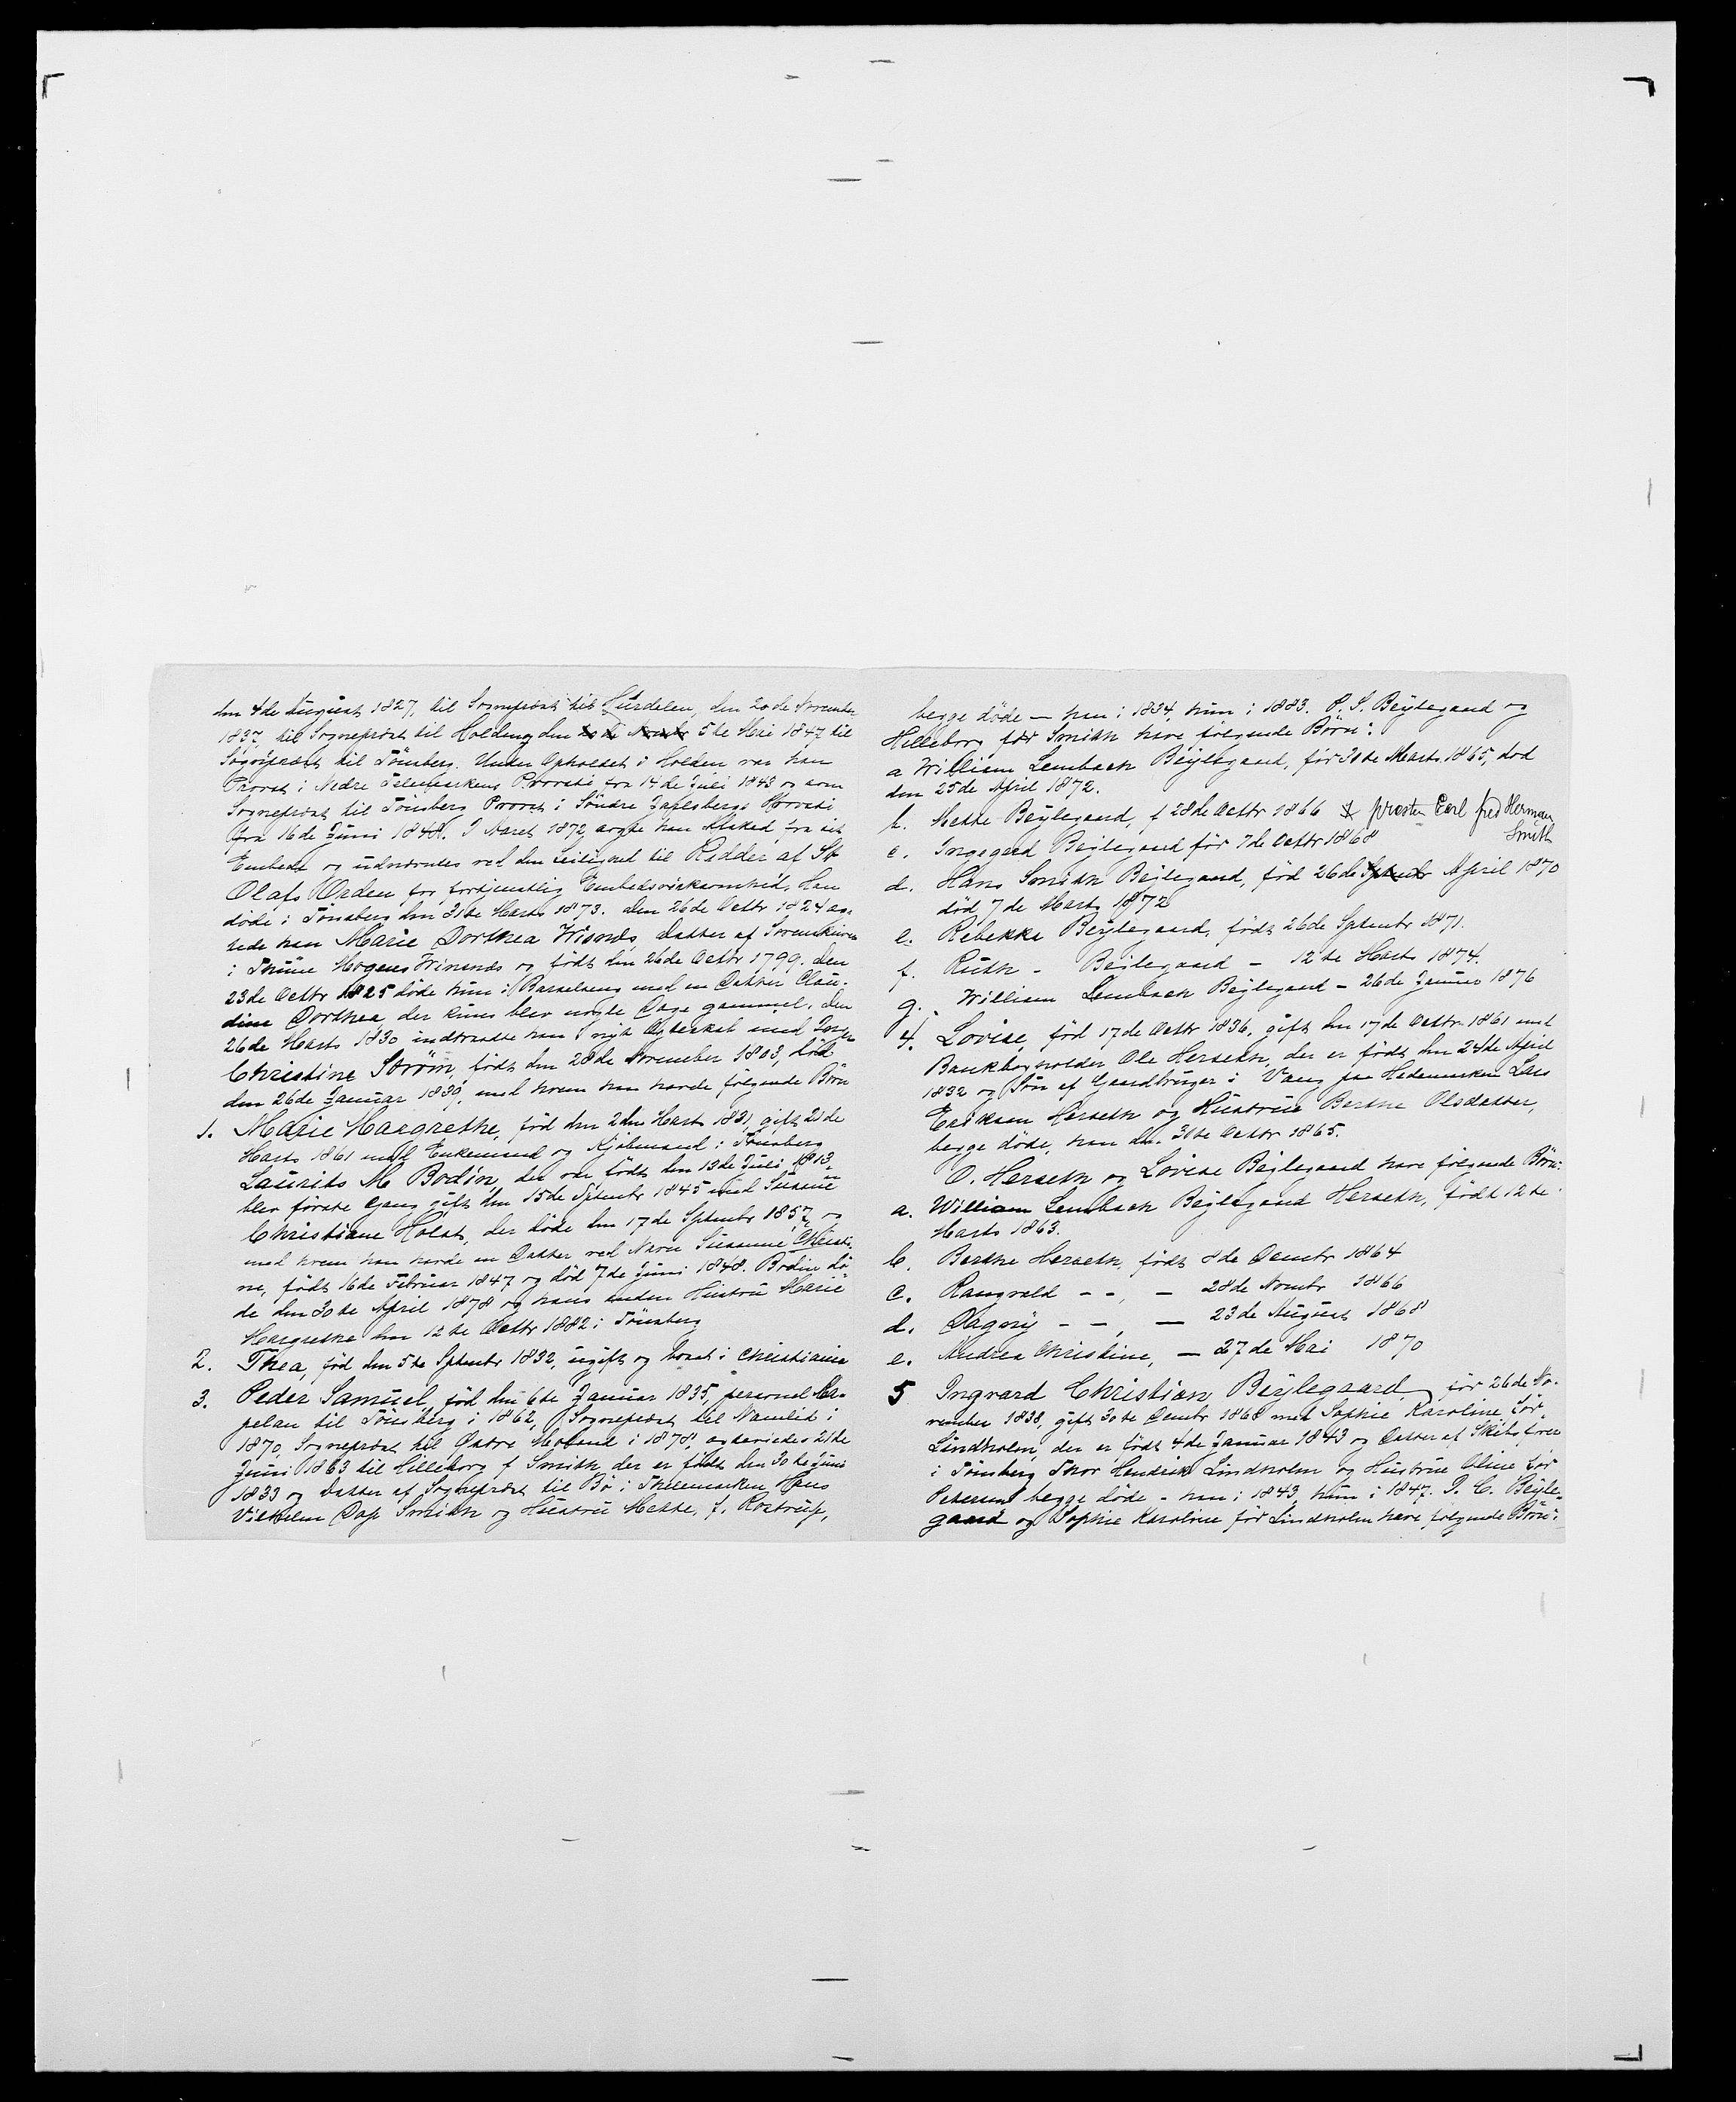 den 4de August 1827, til Sognepræst til Hurdalen, den 20de November
1837, til Sognepræst til Holden og den 5te Mai 1847 til
Sognepræst til Tönsberg. Under Opholdet i Holden var han
Provst i Nedre Telemarkens Provsti fra 14de Juli 1843 og som
Sognepræst til Tönsberg Provst i Söndre Jarlsbergs Provsti
fra 16de Juni 1848. I Marst 1872, ansøgte han Afsked fra sit
Embede og udnævntes ved den Leilighed til Ridder af St
Olafs Orden for fortjenstlig Embedsvirksomhed. Han
döde i Tönsberg den 31te Marts 1873. Den 26de Octbr 1824 æg-
tede han Marie Dorthea Wisnes, Datter af Sorenskriver
i Mogens Wisnes og födt den 26de Octbr 1799. Den
23de Octbr 1825 döde hun i Barselseng med en Datter Clau-
dine Dorthea der kuns blev nogle Dage gammel. Den
26de Marts 1830 indtraadte han i nyt Ægteskab med Inger
Christine Ström, födt den 28de November 1803, död
den 26de Januar 1839, med hvem han havde følgende Börn
1. Marie Margrethe, född den 2den Marts 1831, gift 21de
Marts 1861 med Enkemand og Kjöbmand i Tönsberg
Laurits M Bodin, der var födt den 13de Juli 1813,
blev förste Gang gift den 15de Septembr 1845 med Susanne
Christiane Holst, der döde den 17de Septembr 1857, og
med hvem han havde en Datter ved Navn Susanne Christi-
ne, födt 16de Februar 1847 og död 7de Juni 1848. Bodin dö-
de den 30te April 1878 og hans anden Hustru Marie
Margrethe den 12te Octbr 1882 i Tönsberg
2. Thea, föd den 5te Septembr 1832, ugift og bosat i Christiania
3. Peder Samuel, föd den 6te Januar 1835, personel Ka-
pelan til Tönsberg i 1862, Sognepræst til Namlid i
1870, Sognepræst til Østre Moland i 1878, ægteviedes 21de
Juni 1863 til Hilleborg f Smith, der er född den 30te Juni
1833 og Datter af Sognepræst til Bö i Thelemarken Hans
Vilhelm Dop Smith og Hustru Mette, f. Rostrup,
begge döde – han i 1834, hun i 1883. P. S. Bejlegaard og
Hilleborg för Smith have følgende Börn:
a William Lembach Bejlegaard, för 30te Marts 1865, död
den 25de April 1872.
b. Mette Bejlegaard, f 28de Octbr 1866 presten Carl fred Herman
Smith
c. Ingegerd Bejlegaard för 7de Octbr 1868
d. Hans Smith Bejlegaard, född 26de April 1870
död 7de Marts 1872
e. Rebekka Bejlegaard, födt 26de Septembr 1871.
f. Ruth – Bejlegaard – 12te Marts 1874.
g. William Lembach Bejlegaard – 26de Januar 1876
4. Lovise, föd 17de Octbr 1836, gift den 17de Octbr 1861 med
Bankbogholder Ole Herseth, der er födt den 24de April
1832 og Sön af Gaardbruger i Vang paa Hedemarken Lars
Eriksen Herseth og Hustrue Berthe Olsdatter,
begge döde, han den 30te Octbr 1865.
O. Herseth og Lovise Bejlegaard have følgende Börn:
a. William Lembach Bejlegaard Herseth, födt 12te
Marts 1863.
b. Berthe Herseth, födt 8de Decmbr 1864
c. Rangvald – –, – 28de Novmbr 1866
d. Dagny – –, – 23de August 1868
e. Andrea Christine, – 27de Mai 1870
5 Ingvard Christian Bejlegaard, för 26de No-
vember 1838, gift 30te Decmbr 1868 med Sophie Karoline för
Lindholm, der er födt 4de Januar 1843 og Datter af Skibsfører
i Tönsberg Thor Hendrik Lindholm og Hustrue Oline för
Petersen begge döde – han i 1843, hun i 1847. I. C. Bejle-
gaard og Sophie Karoline för Lindholm have følgende Börn: